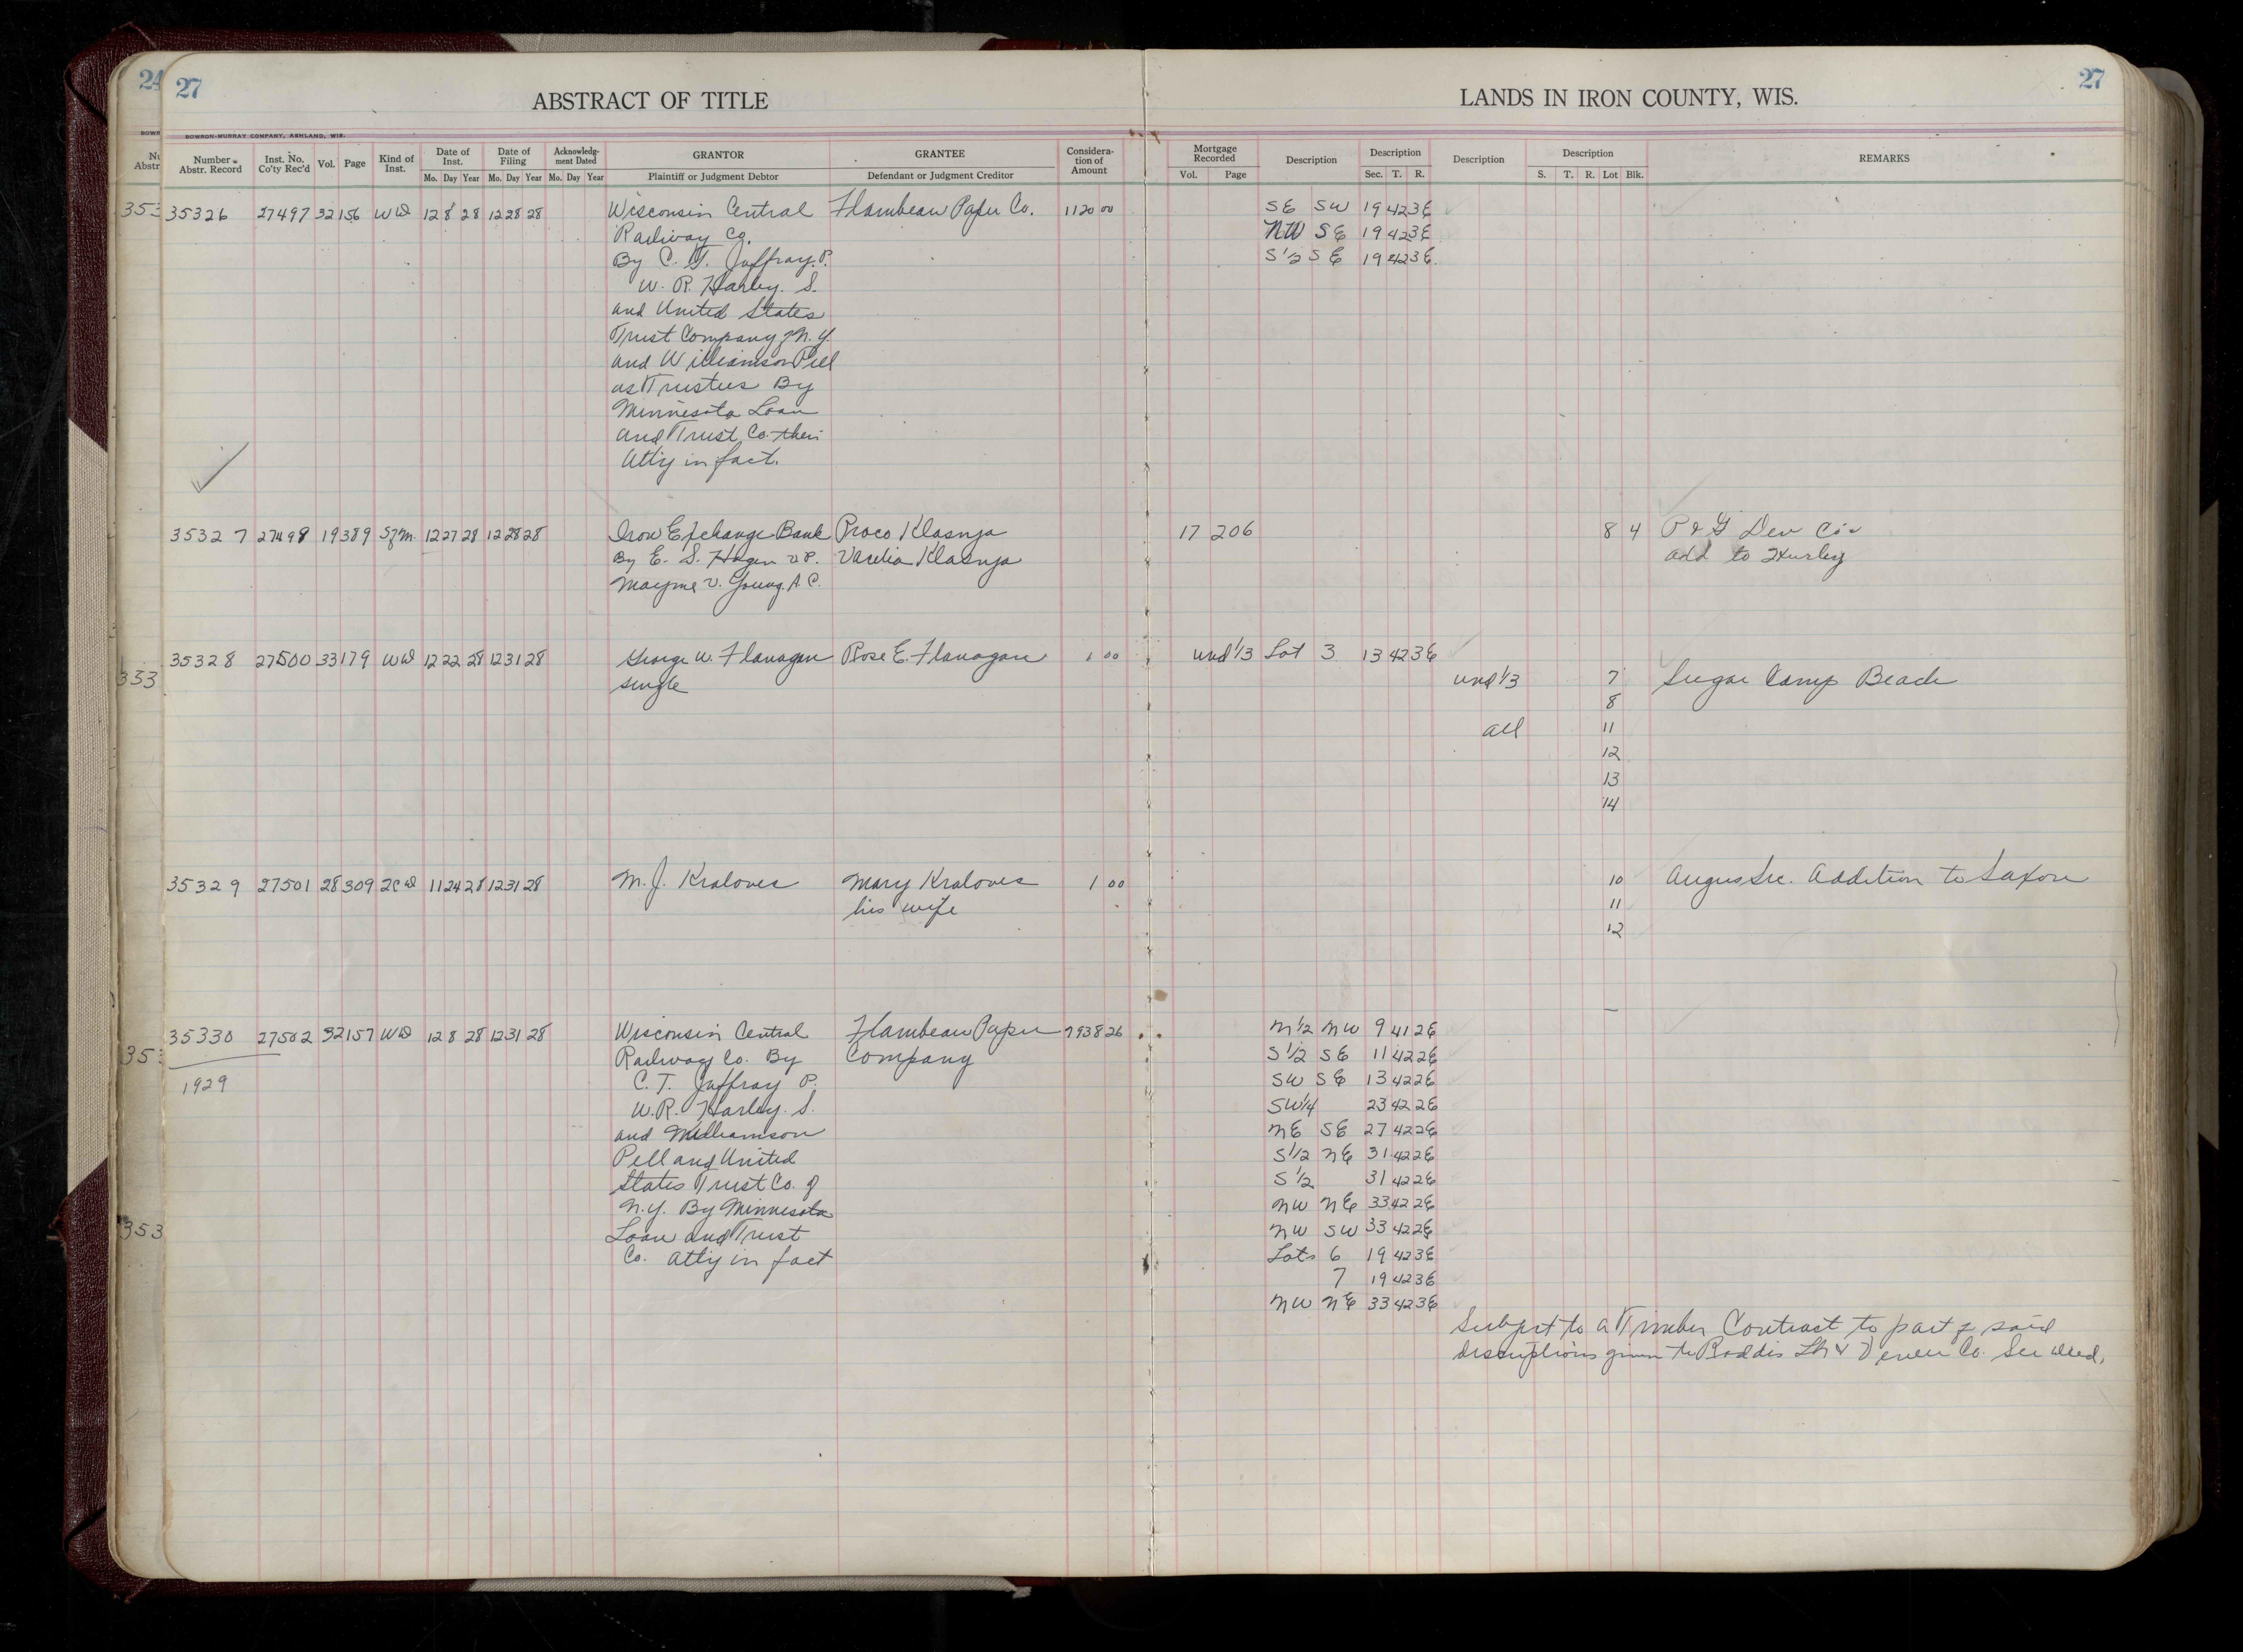 24 27
ABSTRACT OF TITLE
LANDS IN IRON COUNTY, WIS.
27
BOWRON-MURRAY COMPANY, ASHLAND, WIS.
Number Abstr. Record | Inst. No. Co'ty Rec'd | Vol. | Page | Kind of Inst. | Date of Inst. Mo. Day Year | Date of Filing Mo. Day Year | Acknowledgment Dated Mo. Day Year | GRANTOR Plaintiff or Judgment Debtor | GRANTEE Defendant or Judgment Creditor | Consideration of Amount | Mortgage Recorded Vol. Page | Description | Description Sec. T. R. | Description | Description S. T. R. Lot Blk. | REMARKS
35326 27497 32 156 WD 12 8 28 12 28 28 Wisconsin Central Flambeau Paper Co. 1120 00 SE SW 19 42 3E
Railway Co. NW SE 19 42 3E
By C. T. Jaffray. P. S1/2 SE 19 42 3E
W. R. Harley. S.
and United States
Trust Company of N.Y.
and Williamson Pell
as Trustees By
Minnesota Loan
and Trust Co. their
Atty in fact.
35327 27498 19 389 SfM. 12 27 28 12 28 28 Iron Exchange Bank Proco Klasnja 17 206 8 4 P & G Dev Co's
By E. S. Hagen V.P. Vasilia Klasnja add to Hurley
Mayme V. Young. A C.
35328 27500 33 179 WD 12 22 28 12 31 28 George W. Flanagan Rose E. Flanagan 1 00 und 1/3 Lot 3 13 42 3E
single und 1/3 7 Sugar Camp Beach
8
all 11
12
13
14
35329 27501 28 309 2CD 11 24 28 12 31 28 M. J. Kraloves Mary Kraloves 1 00 10 Addition to Saxon
his wife 11
12
35330 27502 32 157 WD 12 8 28 12 31 28 Wisconsin Central Flambeau Paper 7938 26 N1/2 NW 9 41 2E
Railway Co. By Company S1/2 SE 11 42 2E
1929 C. T. Jaffray P. SW SE 13 42 2E
W. R. Harley. S. SW1/4 23 42 2E
and Williamson NE SE 27 42 2E
Pell and United S1/2 NE 31 42 2E
States Trust Co. of S1/2 31 42 2E
N.Y. By Minnesota NW NE 33 42 2E
Loan and Trust NW SW 33 42 2E
Co. Atty in fact Lots 6 19 42 3E
7 19 42 3E
NW NE 33 42 3E
Subject to a Timber Contract to part of said
descriptions given to Roddis Lbr & Veneer Co. See deed.